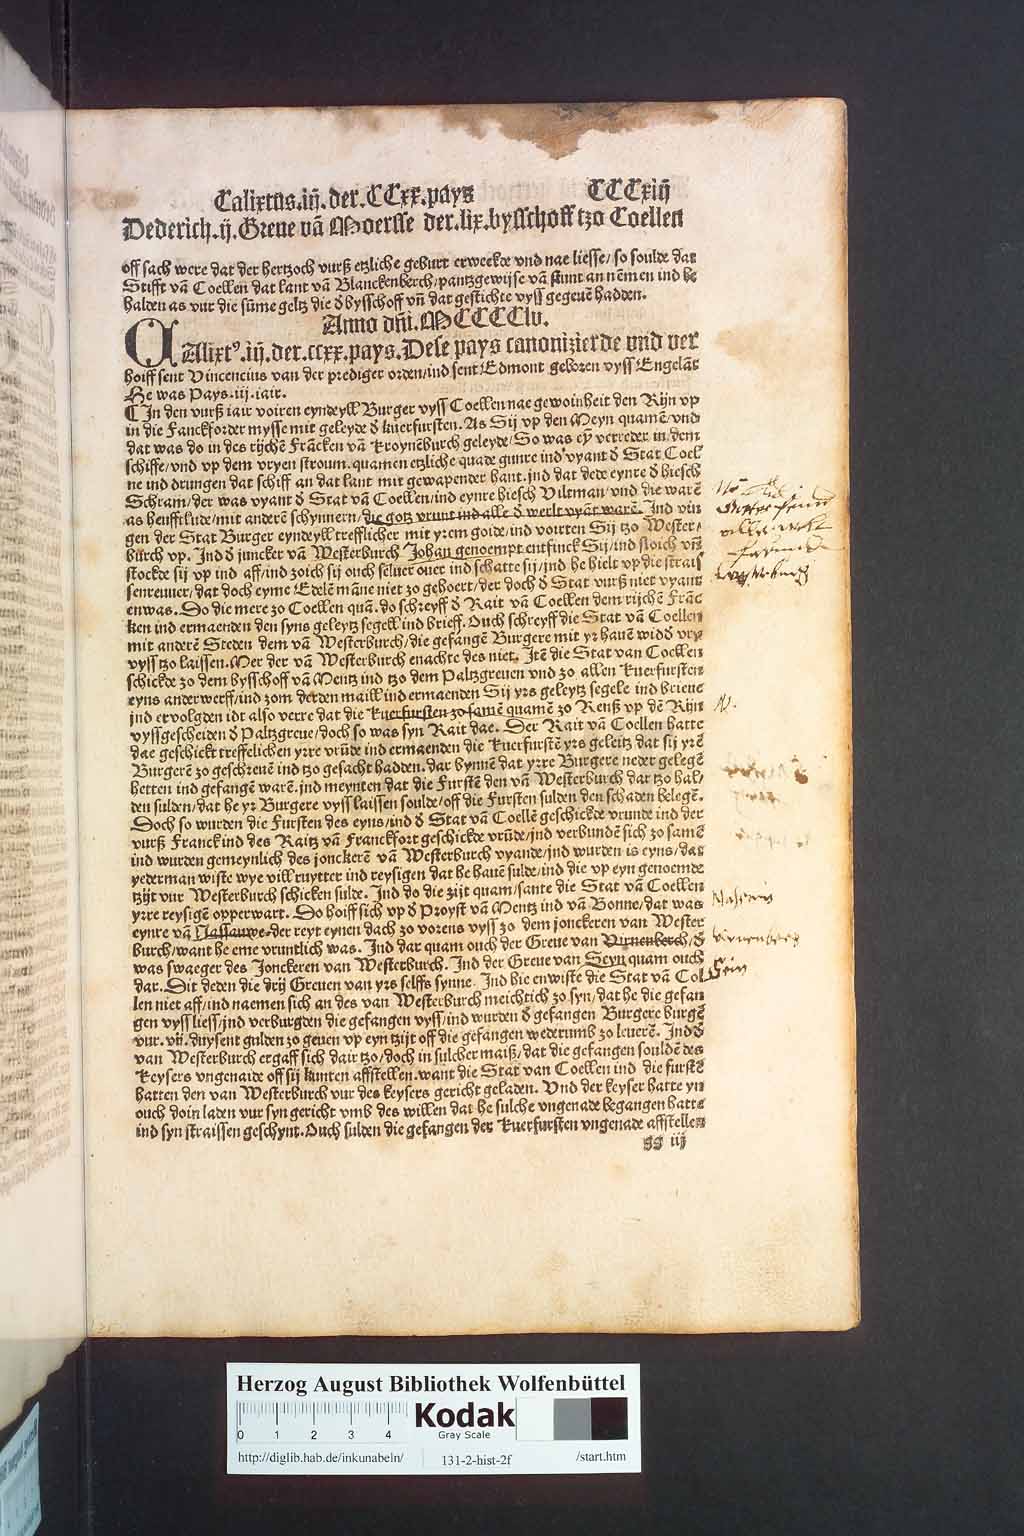 Calixtus.iij.der.CCxx.pays CCCxiij
Dederich.ij.Greue vā Moersse der.lix.bysschoff tzo Coellen
off sach were dat der hertzoch vurß etzliche geburt erweckde vnd nae liesse/so soulde dat
Stifft vā Coellen dat lant vā Blanckenberch/pantzgewijse vā stunt an nemen ind he
halden as vur die sūme geltz die d bysschoff vn̄ dat gestichte vyss gegeuē hadden.
Anno dn̄i.MCCCClv.
CAlixt⁹.iij.der.ccxx.pays.Dese pays canonizierde vnd ver
hoiff sent Vincencius van der prediger orden/ind sent Edmont geboren vyss Engelāt
He was Pays.iij.iair.
¶ In den vurß iair voiren eyndeyll Burger vyss Coellen nae gewoinheit den Rijn vp
in die Fanckforder mysse mit geleyde d kuerfursten. As Sij vp den Meyn quamē/vnd
dat was do in des rijchē Frācken vā Kroynēburch geleyde/So was eyn verreder in/dem
schiffe/vnd vp dem vryen stroum.quamen etzliche quade gunre ind vyant d Stat Coel
ne ind drungen dat schiff an dat lant mit gewapender hant.ind dat dede eynre d hiesch
Schram/der was vyant d Stat vā Coellen/ind eynre hiesch Viltman/vnd die warē
as heufftlude/mit anderē schynnern/die gotz vrunt ind alle d werlt vyāt warē. Ind vin
gen der Stat Burger eyndeyll trefflicher mit yrem goide/ind voirten Sij tzo Wester/
burch vp. Ind d juncker vā Westerburch Johan genoempt entfinck Sij/ind sloich vn̄
stockde sij vp ind aff/ind zoich sij ouch seluer ouer ind schatte sij/ind he hielt vp die strais
senreuuer/dat doch eyme Edelē māne niet zo gehoert/der doch d Stat vurß niet vyant
enwas. Do die mere zo Coellen quā.do schreyff d Rait vā Coellen dem rijchē Frāc
ken ind ermaenden den syns geleytz segell ind brieff. Ouch schreyff die Stat vā Coellen
mit anderē Steden dem vā Westerburch/die gefangē Burgere mit yr hauē widd vry
vyss tzo laissen.Mer der vā Westerburch enachte des niet. Itē die Stat van Coellen
schickde zo dem bysschoff vā Mentz ind tzo dem Paltzgreuen vnd zo allen kuerfursten
eyns anderwerff/ind zom derden maill ind ermaenden Sij yrs geleytz segele ind brieue
ind ervolgden idt also verre dat die kuerfursten zo samē quamē zo Renß vp dē Rijn
vyssgescheiden d Paltzgreue/doch so was syn Rait dae. Der Rait vā Coellen hatte
dae geschickt treffelichen yrre vrūde ind ermaenden die kuerfurstē yrs geleitz dat sij yrē
Burgerē zo geschreuē ind tzo gesacht hadden.dar bynnē dat yrre Burgere neder gelegē
hetten ind gefangē warē.ind meynten dat die Furstē den vā Westerburch dar tzo hal/
den sulden/dat he yr Burgere vyss laissen soulde/off die Fursten sulden den schaden belegē.
Doch so wurden die Fursten des eyns/ind d Stat vā Coellē geschickde vrunde ind der
vurß Franck ind des Raitz vā Franckfort geschickde vrūde/ind verbundē sich zo samē
ind wurden gemeynlich des jonckerē vā Westerburch vyande/ind wurden is eyns/dat
yederman wiste wye vill ruytter ind reysigen dat he hauē sulde/ind die vp eyn genoemde
tzijt vur Westerburch schicken sulde. Ind do die zijt quam/sante die Stat vā Coellen
yrre reysigē opperwart. Do hoiff sich vp d Proyst vā Mentz ind vā Bonne/dat was
eynre vā Nassauwe.der reyt eynen dach zo vorens vyss zo dem jonckeren van Wester
burch/want he eme vruntlich was. Ind dar quam ouch der Greue van Virnenberch/d
was swaeger des Jonckeren van Westerburch. Ind der Greue van Seyn quam ouch
dar. Dit deden die drij Greuen van yrs selffs synne. Ind hie enwiste die Stat vā Col
len niet aff/ind naemen sich an des van Westerburch meichtich zo syn/dat he die gefan
gen vyss liess/ind verburgden die gefangen vyss/ind wurden d gefangen Burgere burgē
vur.vij.duysent gulden zo geuen vp eyn tzijt off die gefangen wederumb zo leuerē. Ind d
van Westerburch ergaff sich dair tzo/doch in sulcher maiß/dat die gefangen souldē des
Keysers vngenaide off sij kunten affstellen.want die Stat van Coellen ind die furstē
hatten den van Westerburch vur des keysers gericht geladen. Vnd der keyser hatte yn
ouch doin laden vur syn gericht vmb des willen dat he sulche vngenade begangen hatte
ind syn straissen geschynt. Ouch sulden die gefangen der Kuerfursten vngenade affstellen
gg iij
N.
Nassaw
Virnenberg
Sein
Herzog August Bibliothek Wolfenbüttel
0 1 2 3 4
Kodak
Gray Scale
http://diglib.hab.de/inkunabeln/ 131-2-hist-2f /start.htm